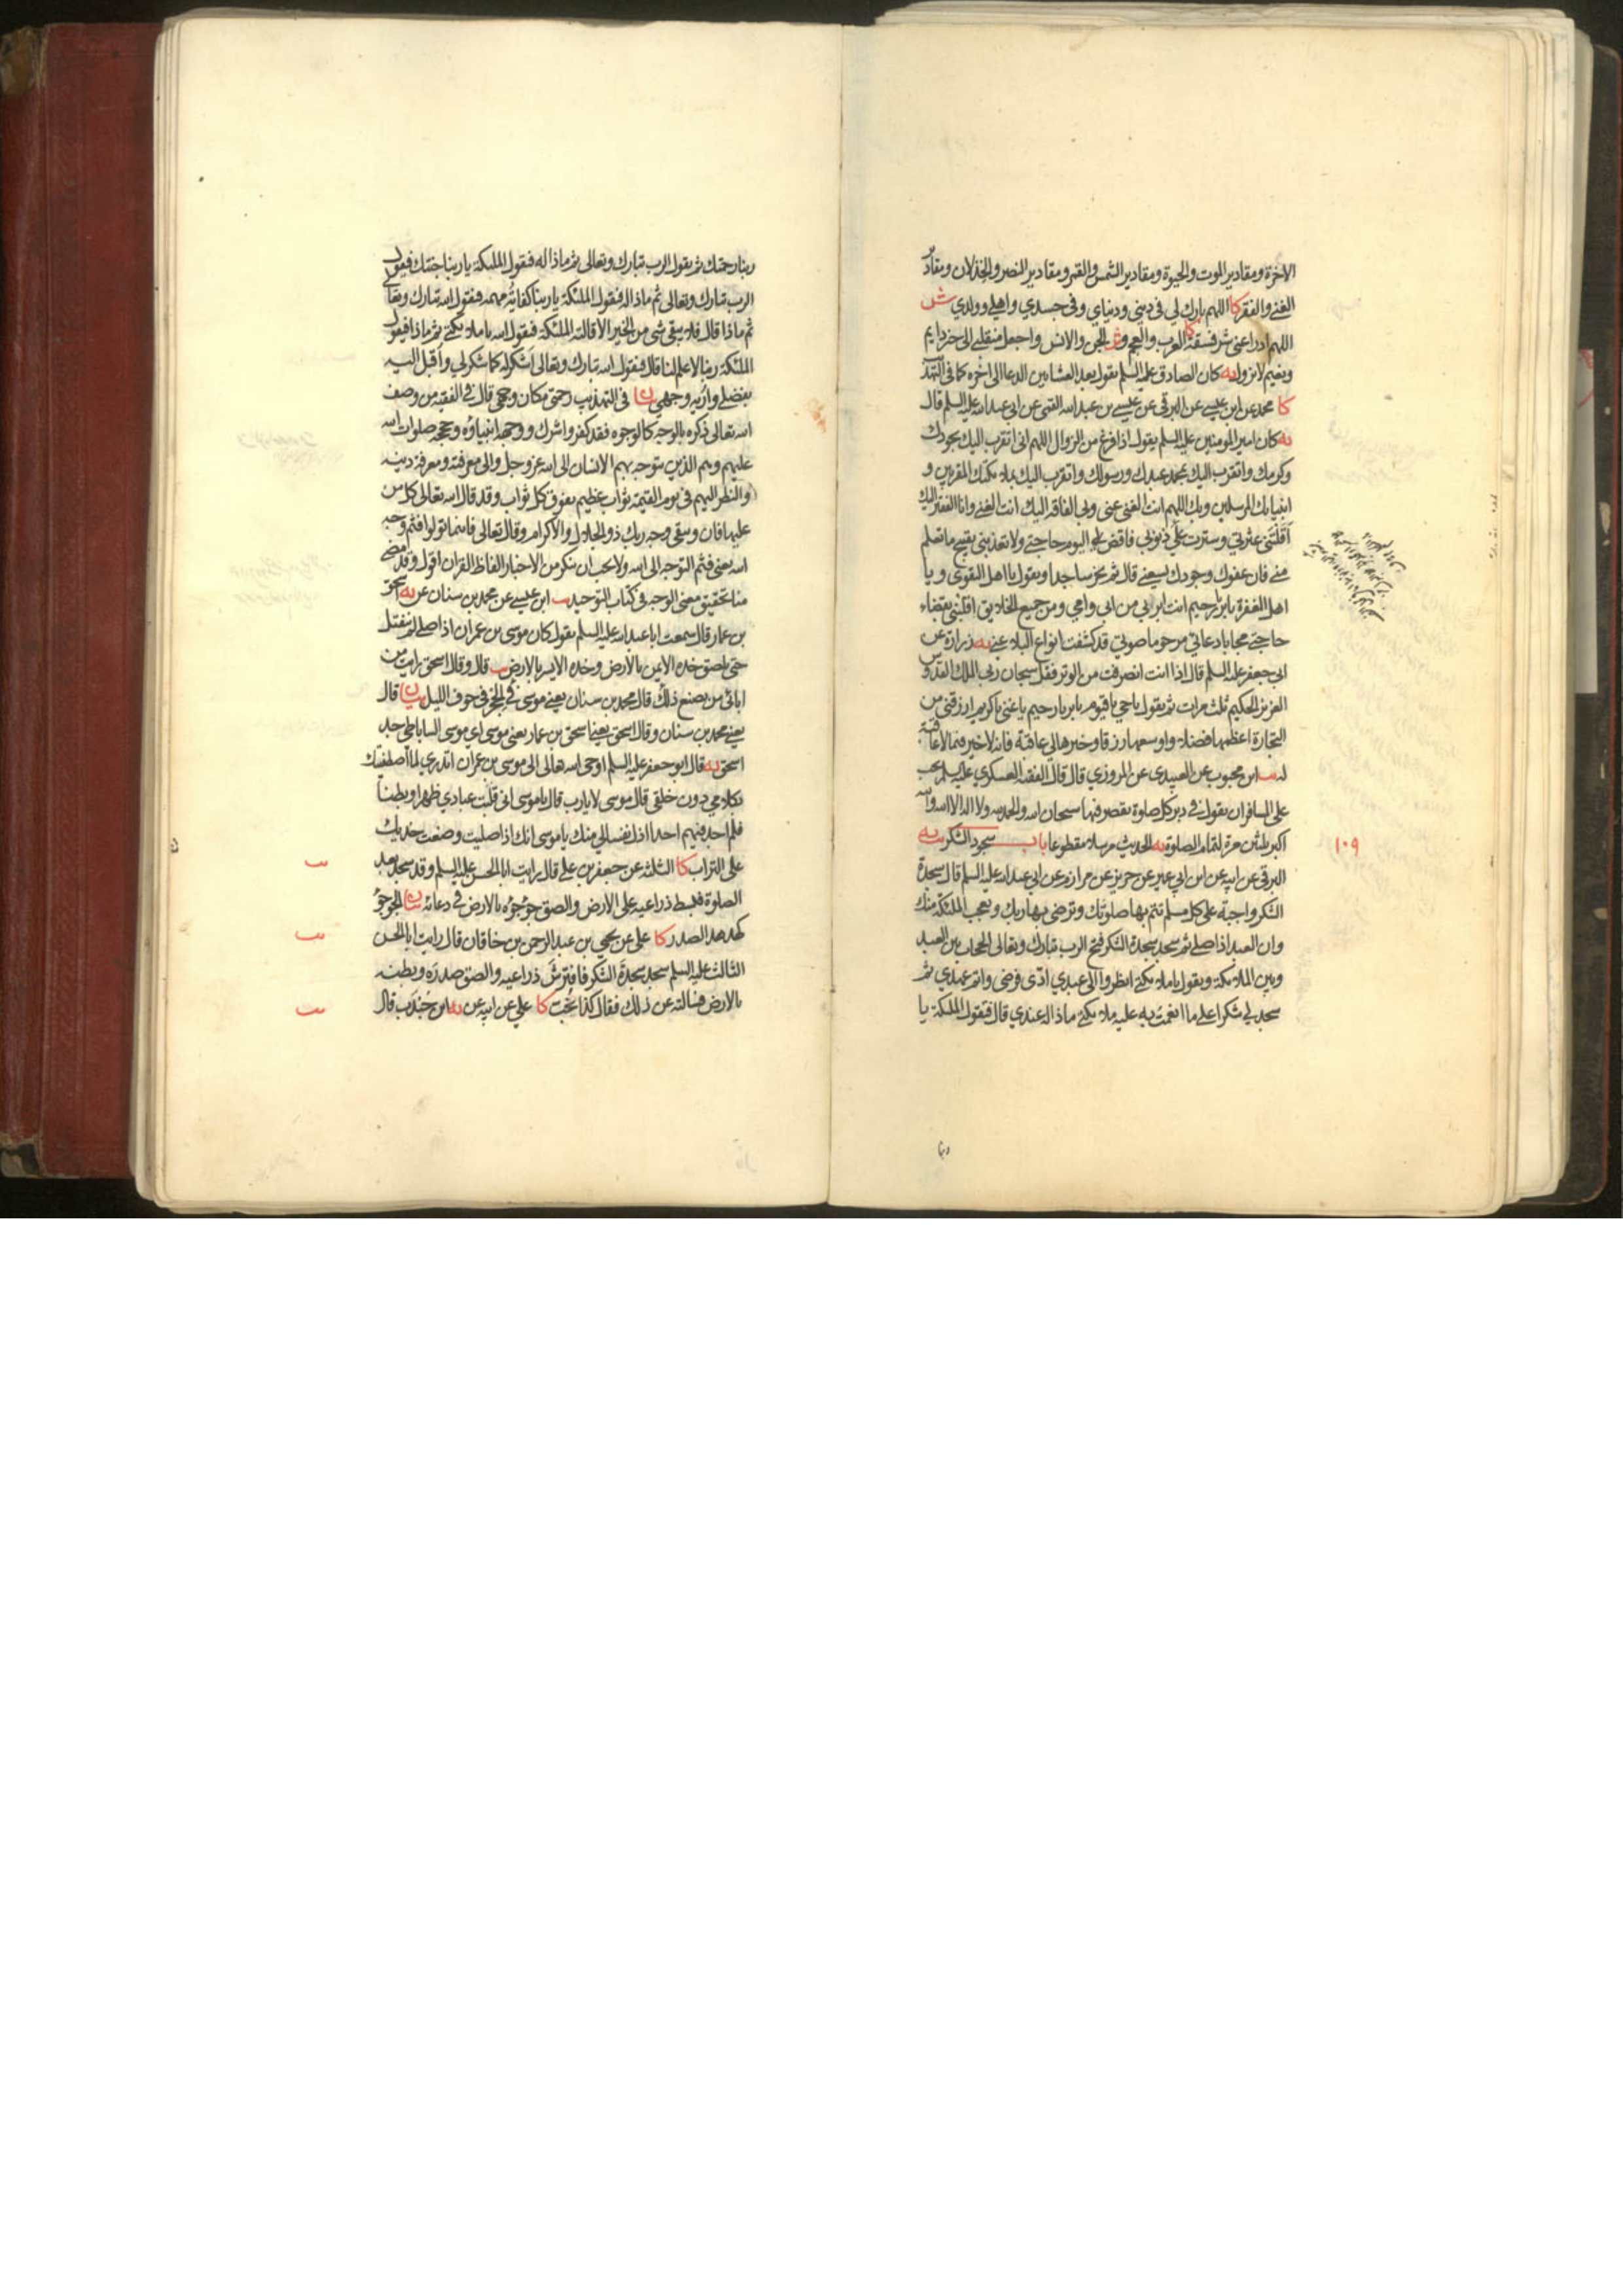 الاخرة ومقادير الموت والحيوة ومقادير الشمس والقمر ومقادير النصر والخذلان ومقادير
الغنى والفقر كا اللهم بارك لي في ديني ودنياي وفي جسدي واهلي وولدي ش
اللهم ادرا عني شر فسقة العرب والعجم و الجن والانس واجعل منقلبي الى خير دايم
ونعيم لا يزول يه كان الصادق عليه السلم يقول بعد العشاءين الدعا الى اخره كما في التهذيب
كا محمد عن ابن عيسى عن البرقي عن عيسى بن عبد الله القمي عن ابي عبد الله عليه السلم قال
يه كان امير المومنين عليه السلم يقول اذا فرغ من الزوال اللهم اني اتقرب اليك بجودك
وكرمك واتقرب اليك بمحمد عبدك ورسولك واتقرب اليك بملائكتك المقربين و
انبيائك المرسلين وبك اللهم انت الغني عني وبي الفاقة اليك انت الغني وانا الفقير اليك
اقلتني عثرتي وسترت علي ذنوبي فاقض لي اليوم حاجتي ولا تعذبني بقبيح ما تعلم
مني فان عفوك وجودك يسعني قال ثم يخر ساجدا ويقول يا اهل التقوى و يا
اهل المغفرة يا بر يا رحيم انت ابر بي من ابي وامي ومن جميع الخلايق اقلبني بقضاء
حاجتي مجابا دعائي مرحوما صوتي قد كشفت انواع البلاء عني يه زرارة عن
ابي جعفر عليه السلم قال اذا انت انصرفت من الوتر فقل سبحان ربي الملك القدوس
العزيز الحكيم ثلث مرات ثم يقول يا حي يا قيوم يا بر يا رحيم يا غني يا كريم ارزقني من
التجارة اعظمها فضلا واوسعها رزقا وخيرها لي عاقبة فانه لا خير فيما لا عاقبة
له يب ابن محبوب عن العبيدي عن المروزي قال قال الفقيه العسكري عليه السلم يجب
على المسافر ان يقول في دبر كل صلوة يقصر فيها سبحان الله والحمد لله ولا اله الا الله والله
اكبر ثلثين مرة لتمام الصلوة يه الحديث مرسلا مقطوعا باب سجود الشكر يب يه
البرقي عن ابيه عن ابن ابي عمير عن حريز عن مرازم عن ابي عبد الله عليه السلم قال سجدة
الشكر واجبة على كل مسلم تتم بها صلوتك وترضي بها ربك وتعجب الملئكة منك
وان العبد اذا صلى ثم سجد سجدة الشكر فتح الرب تبارك وتعالى الحجاب بين العبد
وبين الملائكة ويقول يا ملائكتي انظروا الى عبدي ادى فرضي واتم عهدي ثم
سجد لي شكرا على ما انعمت به عليه ملائكتي ماذا له عندي قال فتقول الملئكة يا
ربنا
١٠٩
ربنا رحمتك ثم يقول الرب تبارك وتعالى ثم ماذا له فتقول الملئكة يا ربنا جنتك فيقول
الرب تبارك وتعالى ثم ماذا له فتقول الملئكة يا ربنا كفاية مهمه فيقول الله تبارك وتعالى
ثم ماذا قال فلا يبقى شي من الخير الا قالته الملئكة فيقول الله يا ملائكتي ثم ماذا فيقول
الملئكة ربنا لا علم لنا قال فيقول الله تبارك وتعالى اشكر له كما شكر لي واقبل اليه
بفضلي واريه وجهي بيان في التهذيب رحمتي مكان وجهي قال في الفقيه من وصف
الله تعالى ذكره بالوجه كالوجوه فقد كفر واشرك ووجهه انبياؤه وحججه صلوات الله
عليهم وهم الذين يتوجه بهم الانسان الى الله عز وجل والى معرفته ومعرفة دينه
والنظر اليهم في يوم القيمة ثواب عظيم يفوق كل ثواب وقد قال الله تعالى كل من
عليها فان ويبقى وجه ربك ذو الجلال والاكرام وقال تعالى فاينما تولوا فثم وجه
الله يعني فثم التوجه الى الله ولا يجب ان ينكر من الاخبار الفاظ القران اقول وقد مضى
منا تحقيق معنى الوجه في كتاب التوحيد يب ابن عيسى عن محمد بن سنان عن يه اسحق
بن عمار قال سمعت ابا عبد الله عليه السلم يقول كان موسى بن عمران اذا صلى لم ينفتل
حتى يلصق خده الايمن بالارض وخده الايسر بالارض يب قال وقال اسحق رايت من
ابائي من يصنع ذلك قال محمد بن سنان يعني موسى في الحجر في جوف الليل بيان قال
يعني محمد بن سنان وقال اسحق يعني اسحق بن عمار يعني موسى اي موسى الساباطي جد
اسحق يه قال ابو جعفر عليه السلم اوحى الله تعالى الى موسى بن عمران اتدري لما اصطفيتك
بكلامي دون خلقي قال موسى لا يا رب قال يا موسى اني قلبت عبادي ظهرا وبطنا
فلم اجد فيهم احدا اذل نفسا لي منك يا موسى انك اذا صليت وضعت خديك
على التراب كا الثلثة عن جعفر بن علي قال رايت ابا الحسن عليه السلم وقد سجد بعد
الصلوة فبسط ذراعيه على الارض والصق جؤجؤه بالارض في دعائه بيان الجؤجؤ
كهدهد الصدر كا علي عن يحيى بن عبد الرحمن بن خاقان قال رايت ابا الحسن
الثالث عليه السلم سجد سجدة الشكر فافترش ذراعيه والصق صدره وبطنه
بالارض فسالته عن ذلك فقال كذا يجب كا علي عن ابيه عن يه ابن جندب قال
يب
يب
يب